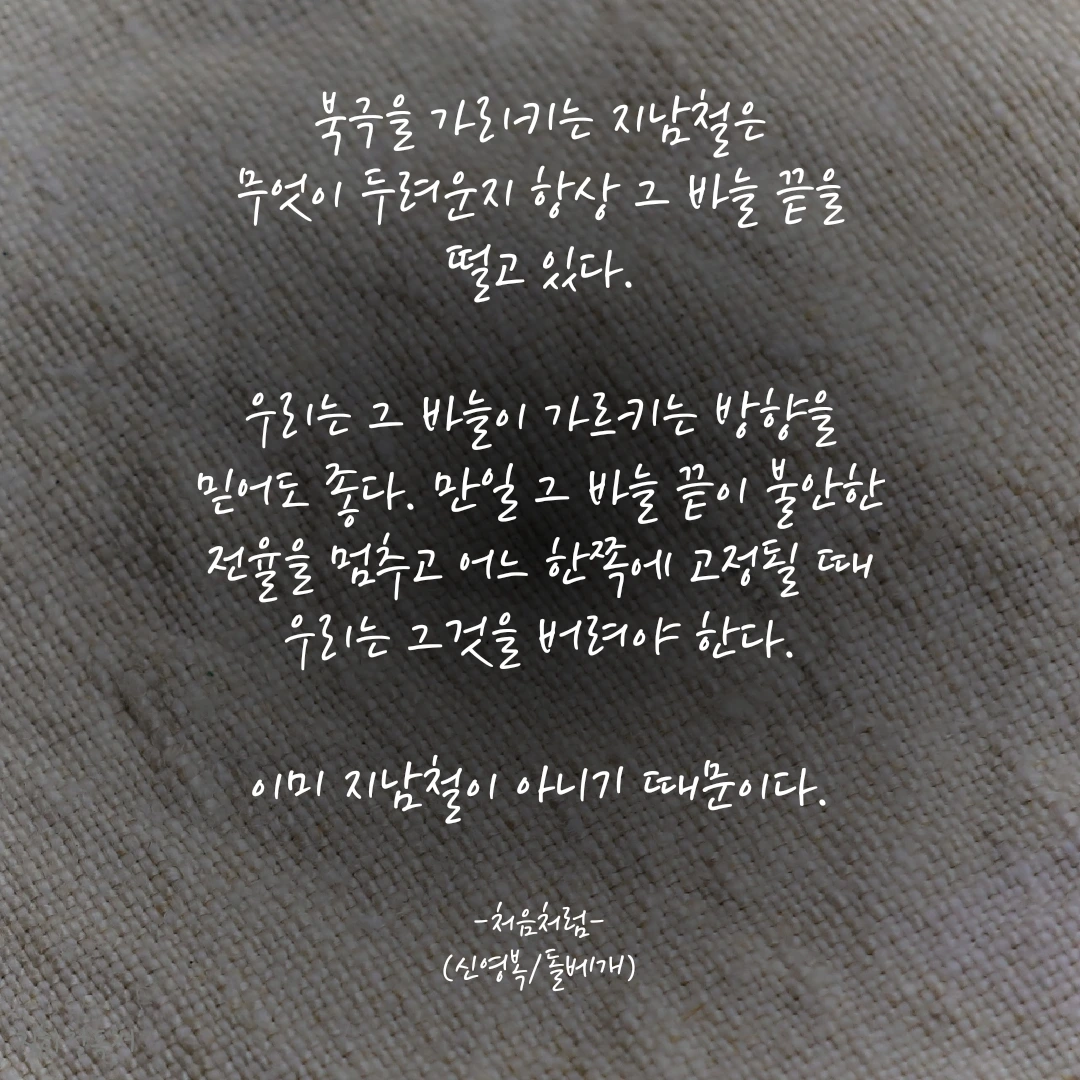 북극을 가리키는 지남철은
무엇이 두려운지 항상 그 바늘 끝을
떨고 있다.
우리는 그 바늘이 가르키는 방향을
믿어도 좋다. 만일 그 바늘 끝이 불안한
전율을 멈추고 어느 한쪽에 고정될 때
우리는 그것을 버려야 한다.
이미 지남철이 아니기 때문이다.
-처음처럼-
(신영복/돌베개)